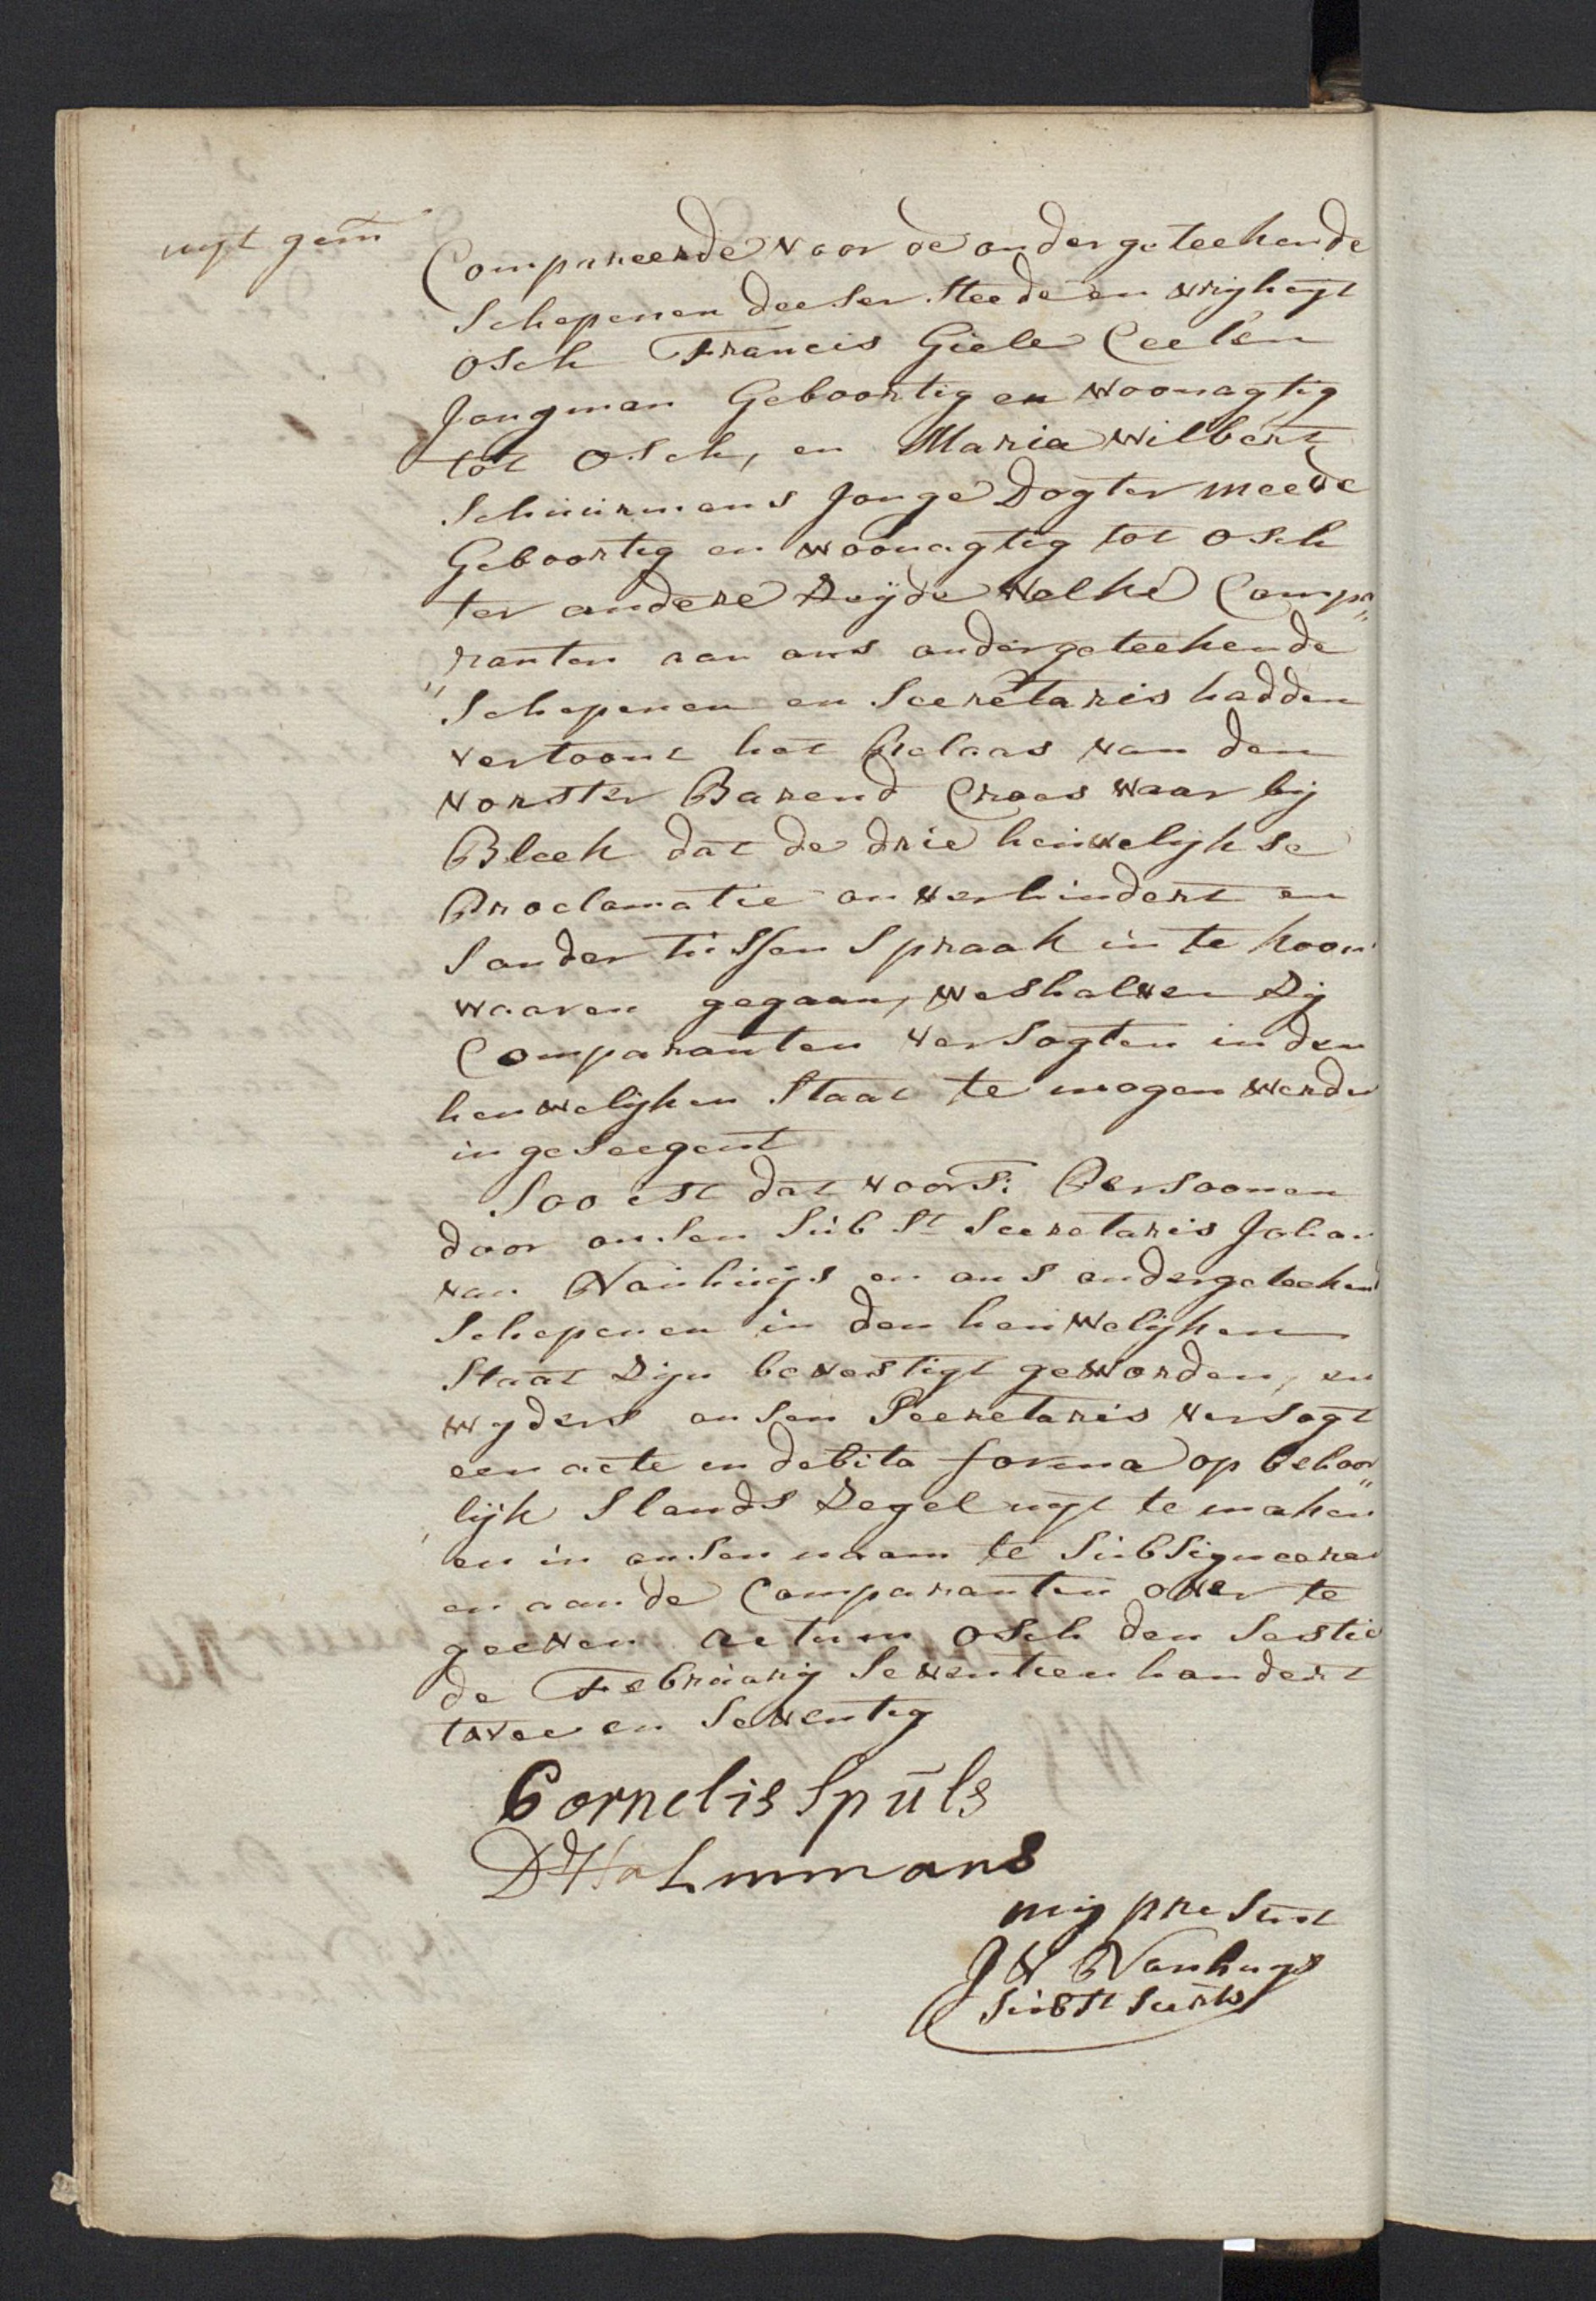 uyt gem
Compareerde voor de ondergeteekende
Schepenen deeser Steede en vryheyt
Osch Francis Giele Ceelen
Jongman Geboortig en Woonagtig
tot Osch, en Maria Wilbert
Schuurmans Jonge Dogter meede
Geboortig en woonagtig tot Osch
ter andere Zeyde Welke Compa„
„ranten aan ons ondergeteekende
Schepenen en Secretaris hadden
vertoont het Relaas van den
Vorster Barend Craas waar by
Bleek dat de drie heuwelykse
Proclamatie onverhindert en
Sonder tussen Spraak in te koom
waaren gegaan, weshalven Zy
Comparanten versogten in den
heuwelyken Staat te mogen werden
ingeseegent
Soo ist dat voors: Persoonen
door onsen Subst Secretaris Johan
van Nanhuys en ons ondergeteekend
Schepenen in den heuwelyken
Staat Zyn bevestigt geworden, en
wyders onsen Secretaris versogt
een acte in debita forma op behoor„
lyk Slands Zegel uyt te maken
en in onsen naam te Subsigneeren
en aan de Comparanten over te
geeven Actum Osch den Sestie
de February Seventien hondert
twee en Seventig
Cornelis Spüls
mij present
J V Nanhuys
Subst Secrts